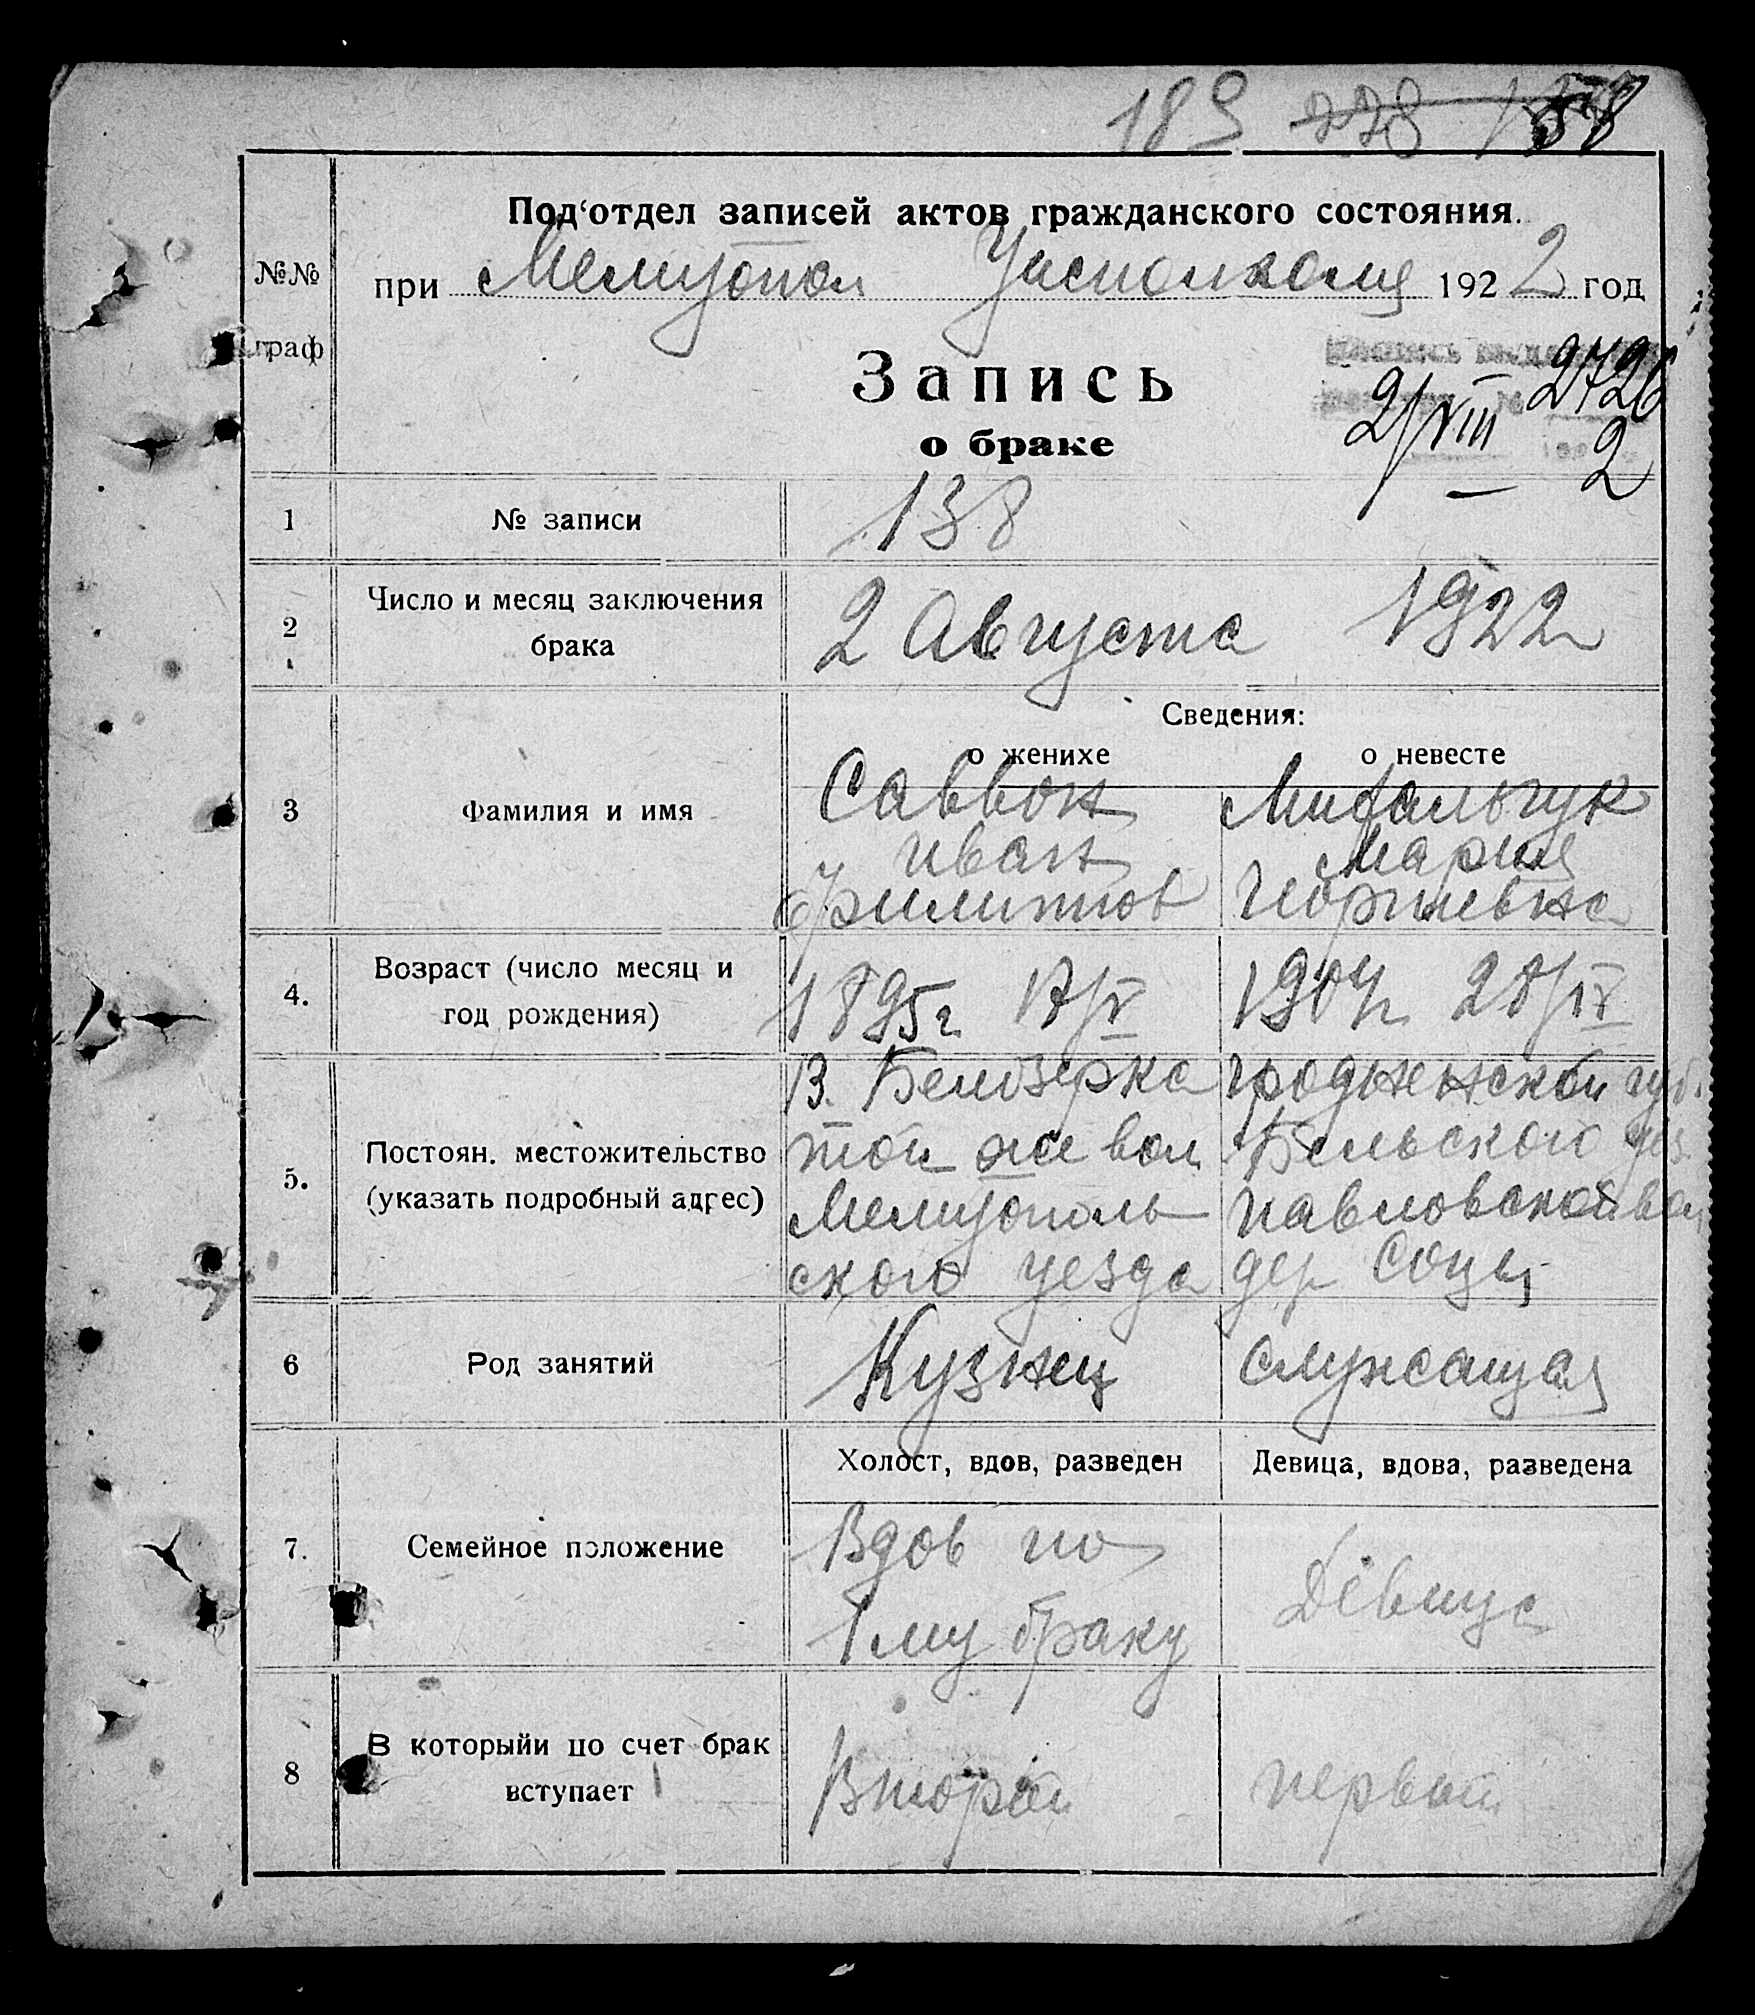 189 278
Под‘отдел записей актов гражданского состояния.
№№ граф
при Мелитопол Уисполкоме 1922 год
Запись
о браке
2/VIII 2726
2
1 № записи 138
2 Число и месяц заключения
брака
2 Августа 1922
Сведения:
о женихе о невесте
3 Фамилия и имя
Саввон Михальчук
Иван Мария
Филиппов
4. Возраст (число месяц и
год рождения)
1895г 17/V 1904г 28/IV
5. Постоян. местожительство
(указать подробный адрес)
В. Белозерка Гродненской губ.
той же вол. Бельского уез.
Мелитополь Павловской вол
ского уезда дер Соцы
6 Род занятий Кузнец служащая
Холост, вдов, разведен Девица, вдова, разведена
7. Семейное положение
Вдов по
1му браку
Девица
8 В которыйи по счет брак
вступает
Второй первый